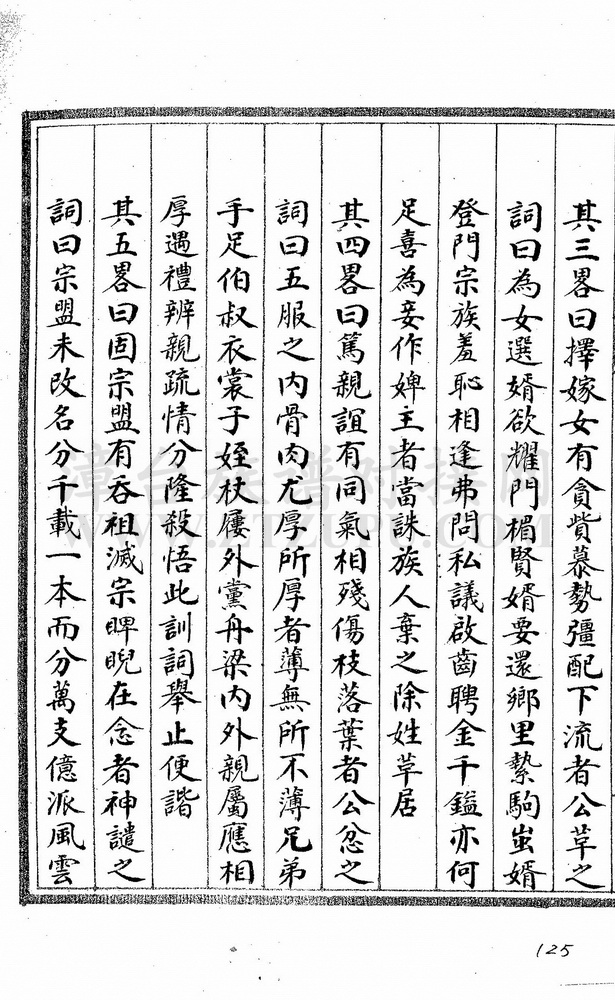 其三畧曰擇嫁女有貪貲慕勢彊配下流者公草之
詞曰為女選婿欲耀門楣賢婿要還鄉里縶駒蚩婿
登門宗族羞恥相逢弗問私議啟齒聘金千鎰亦何
足喜為妾作婢主者當誅族人棄之除姓草居
其四畧曰篤親誼有同氣相殘傷枝落葉者公忿之
詞曰五服之內骨肉尤厚所厚者薄無所不薄兄弟
手足伯叔衣裳子姪杖屨外黨舟梁內外親屬應相
厚遇禮辨親疏情分隆殺悟此訓詞舉止便諧
其五畧曰固宗盟有吞祖滅宗睥睨在念者神譴之
詞曰宗盟未改名分千載一本而分萬支億派風雲
125